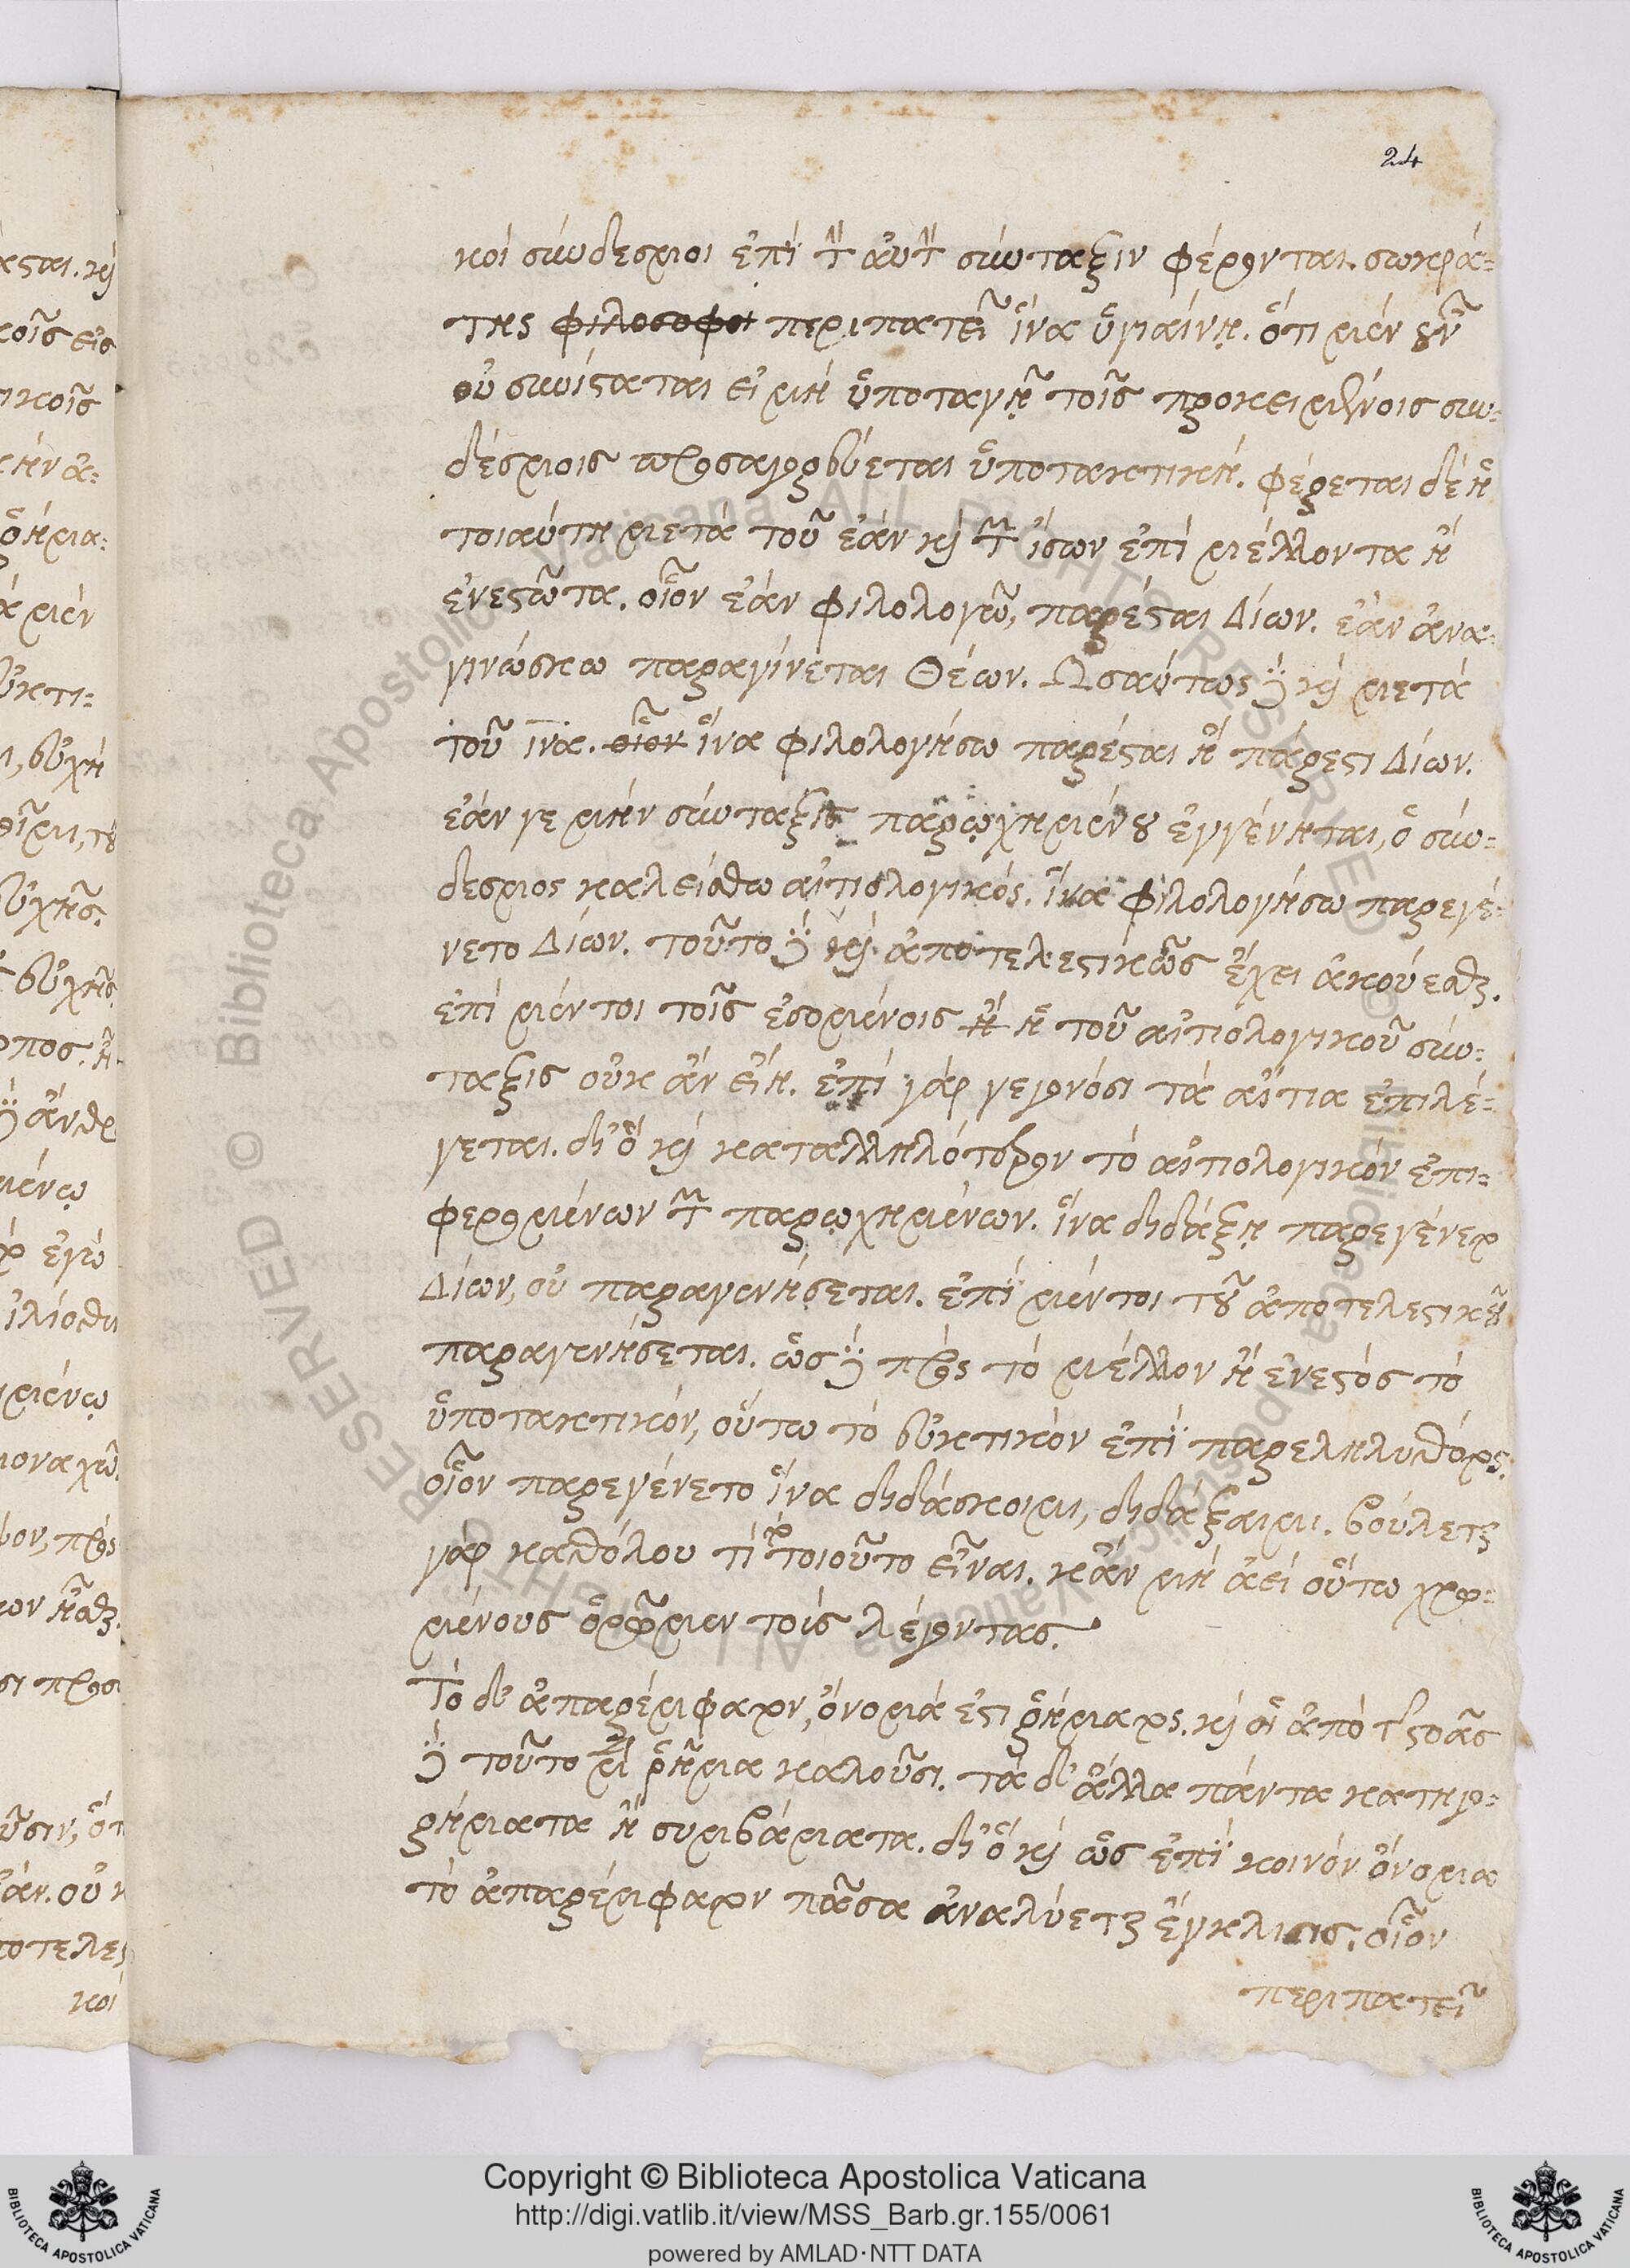 24
κοὶ σύνδεσμοι ἐπὶ τὴν αὐτὴν σύνταξιν φέρονται. σωκρά=
της φιλοσοφοι περιπατεῖ ἵνα ὑγιαίνῃ. ὅτι μὲν οὖν
οὐ συνίσταται εἰ μὴ ὑποταγῇ τοῖς προκειμένοις συν=
δέσμοις προσαγορεύεται ὑποτακτική. φέρεται δὲ ἡ
τοιαύτη μετὰ τοῦ ἐὰν καὶ τῶν ἴσων ἐπὶ μέλλοντα ἢ
ἐνεστῶτα. οἷον ἐὰν φιλολογῶ, παρέσται Δίων. ἐὰν ἀνα=
γινώσκω παραγίνεται Θέων. Ὡσαύτως δὲ καὶ μετὰ
τοῦ ἵνα. οἷον ἵνα φιλολογήσω παρέσται ἢ πάρεστι Δίων.
ἐάν γε μὴν σύνταξις παρῳχημένου ἐγγένηται, ὁ σύν=
δεσμος καλείσθω αἰτιολογικός. ἵνα φιλολογήσω παρεγέ=
νετο Δίων. τοῦτο δὲ καὶ ἀποτελεστικῶς ἔχει ἀκούεσθαι.
ἐπὶ μέντοι τοῖς ἐσομένοις ἢ ἡ τοῦ αἰτιολογικοῦ σύν=
ταξις οὐκ ἂν εἴη. ἐπὶ γὰρ γεγονόσι τὰ αἴτια ἐπιλέ=
γεται. δι' ὃ καὶ καταλληλότερον τὸ αἰτιολογικὸν ἐπι=
φερομένων τῶν παρῳχημένων. ἵνα διδάξῃ παρεγένετο
Δίων, οὐ παραγενήσεται. ἐπὶ μέντοι τοῦ ἀποτελεστικοῦ
παραγενήσεται. ὡς δὲ πρὸς τὸ μέλλον ἢ ἐνεστὸς τὸ
ὑποτακτικὸν, οὕτω τὸ εὐκτικὸν ἐπὶ παρεληλυθότος.
οἷον παρεγένετο ἵνα διδάσκοιμι, διδάξαιμι. βούλεται
γὰρ καθόλου τί τὸ τοιοῦτο εἶναι. κἂν μὴ ἀεὶ οὕτω χρω=
μένους ὁρῶμεν τοὺς λέγοντας.
Τὸ δ' ἀπαρέμφατον, ὄνομά ἐστι ῥήματος. καὶ οἱ ἀπὸ τῆς στοᾶς
δὲ τοῦτο μὲν ῥῆμα καλοῦσι. τὰ δ' ἄλλα πάντα κατηγο=
ρήματα ἢ συμβάματα. δι' ὃ καὶ ὡς ἐπὶ κοινὸν ὄνομα
τὸ ἀπαρέμφατον πᾶσα ἀναλύεται ἔγκλισις. οἷον
περιπατεῖ
Copyright © Biblioteca Apostolica Vaticana
http://digi.vatlib.it/view/MSS_Barb.gr.155/0061
powered by AMLAD·NTT DATA